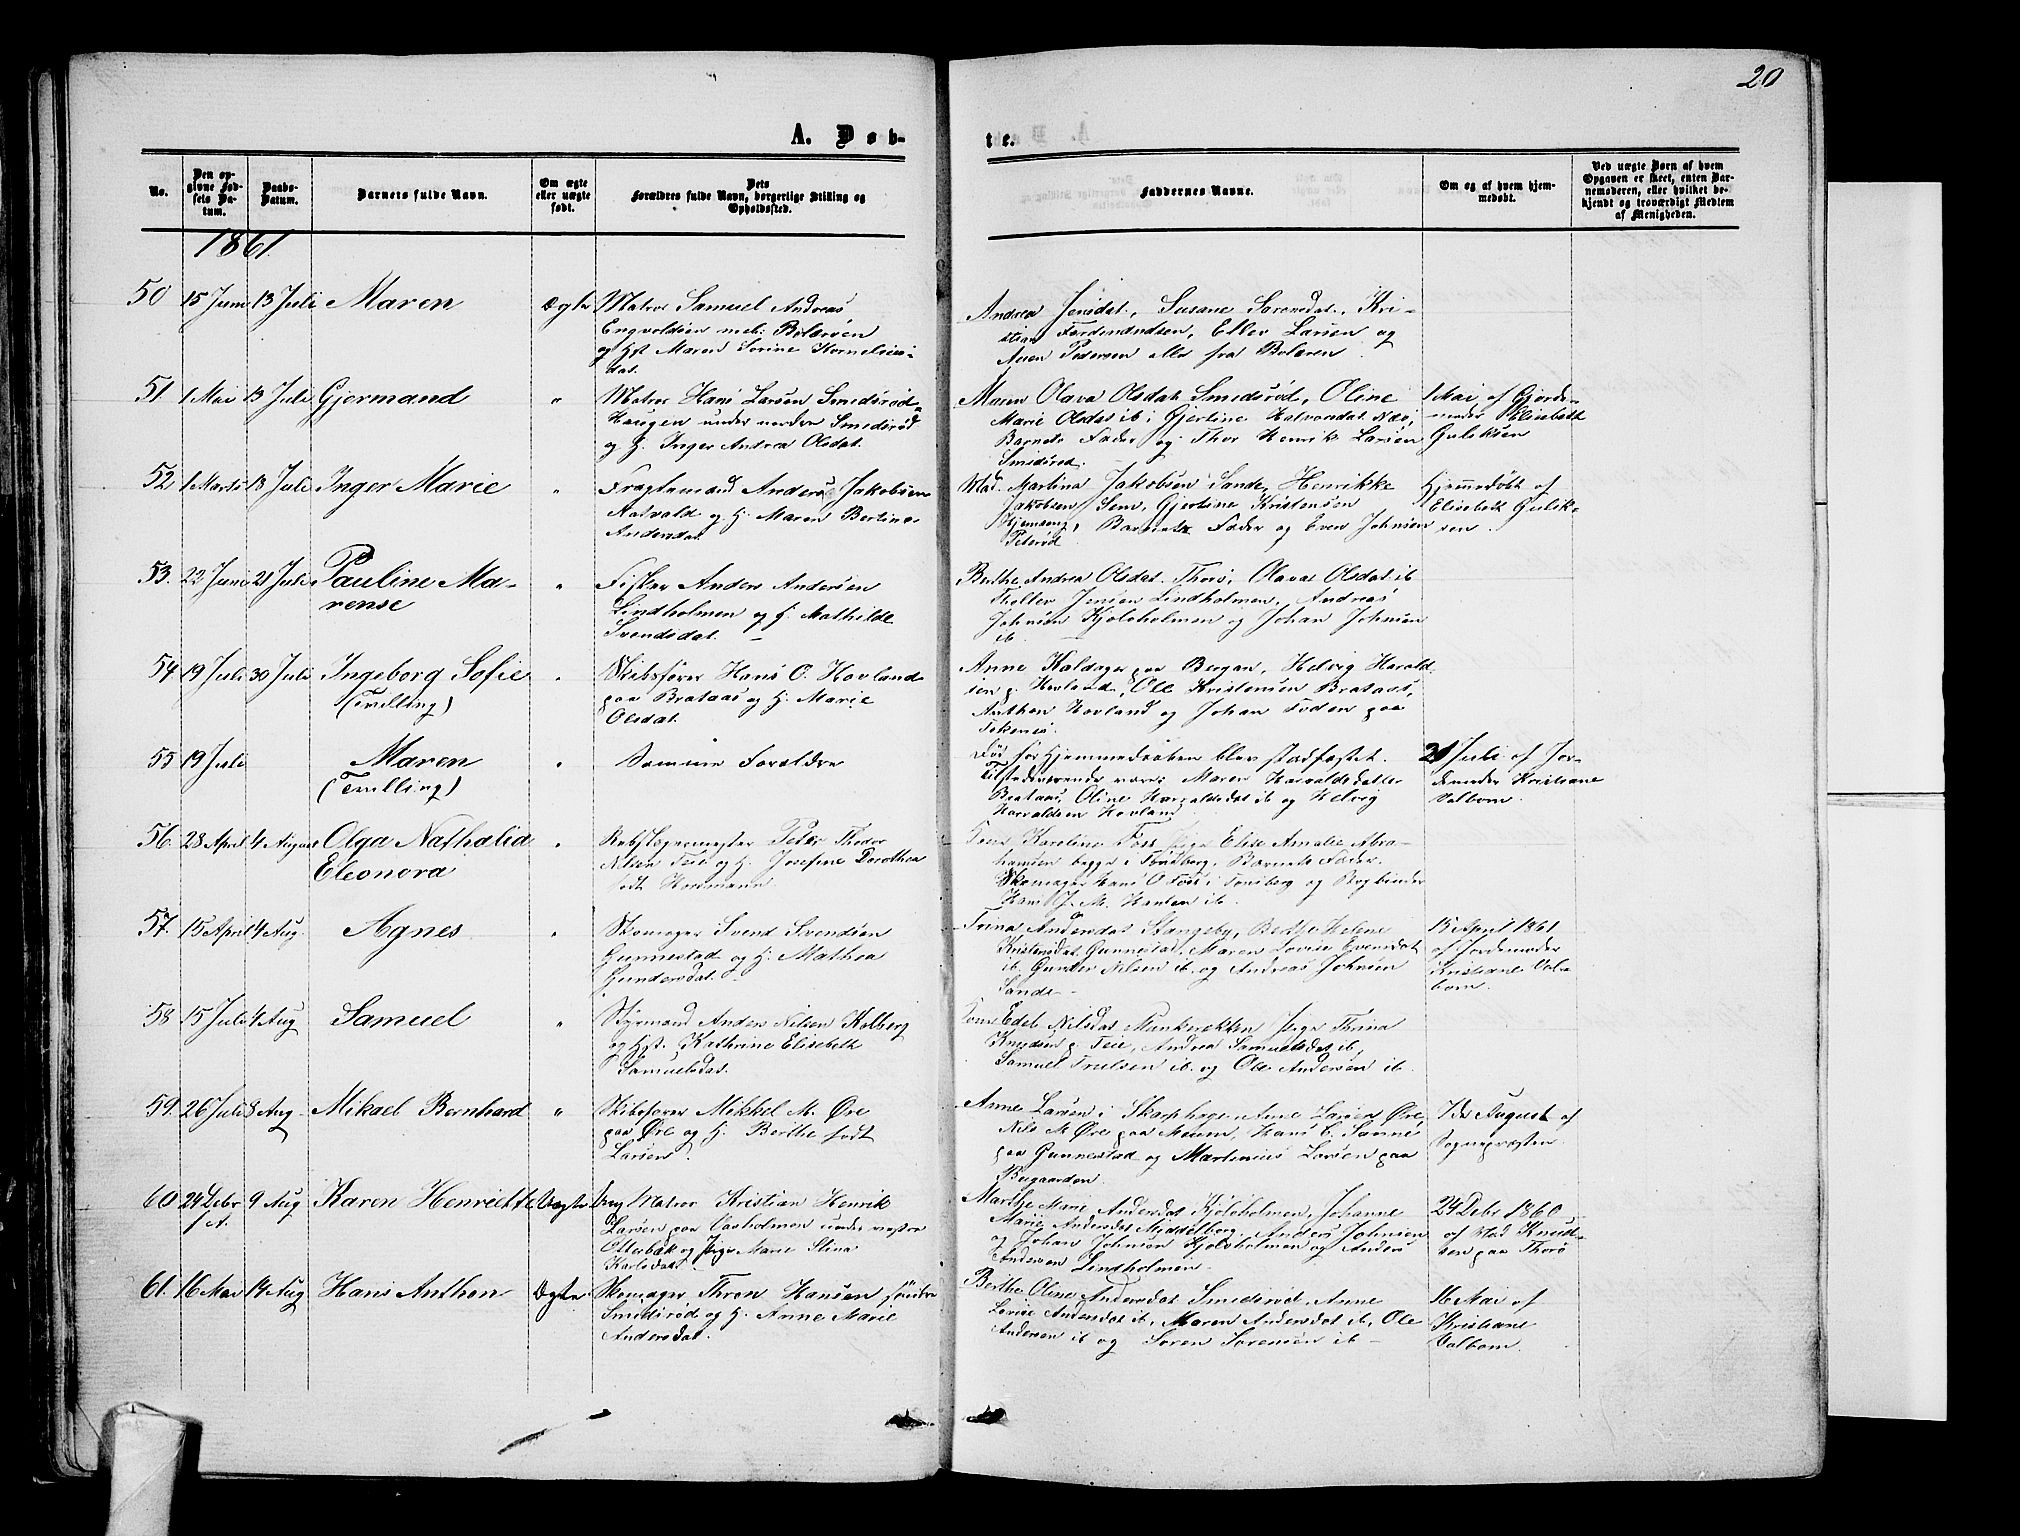 20
A. Døb-
te.
No.
Den op-
givne Fød-
sels Da-
tum.
Daabs-
Datum.
Barnets fulde Navn.
Om ægte
eller uægte
født.
Dets
Forældres fulde Navn, borgerlige Stilling og
Opholdssted.
Faddernes Navne.
Om og af hvem hjem-
medøbt.
Ved uægte Børn af hvem
Opgaven er skeet, enten Bar-
nemoderen, eller hvilket be-
kjendt og troværdigt Medlem
af Menigheden.
1861.
50 15 Juni 13 Juli Maren Ægte
Matros Samuel Andreas
Engvoldsen Bolæren
og Hst Maren Sorine Kornelius-
dat.
Andrea Jensdat., Susane Sorensdat., Kri-
stian Ferdinandsen, Eller Larsen og
Pedersen alle fra Bolæren.
51. 1 Mai 13 Juli Gjermand "
Matros Hans Larsen Smidsrød-
Haugen under nordre Smidsrød
og H. Inger Andrea Olsdat.
Maren Olava Olsdat Smidsrød, Oline
Marie Olsdat ib; Gjertine Halvorsdat Næs,
Barnets Fader og Thor Henrik Larsen
Smidsrød.
1 Mai af Gjorde-
moder Elisabeth
Guliksen
52. 1 Marts 13 Juli Inger Marie "
Fragtemand Anders Jakobsen
og H. Maren Bertine
Andersdat.
Mad. Martina Jakobsen Sande, Henrikke
Jakobsen Sem, Gjertine Kristensen
Barnets Fader og Even Johnsen
Hjemmedøbt af
Elisabeth Gulik-
sen.
53. 22 Juni 21 Juli Pauline Ma-
rense "
Fisker Anders Andersen
Lindholmen og H. Mathilde
Svendsdat.
Berthe Andrea Olsdat. Thorø, Olava Olsdat ib
Jensen Lindholmen, Andreas
Johnsen Kjøløholmen og Johan Johnsen
ib.
54 19 Juli 30 Juli Ingeborg Sofie
(Tvilling) "
Skibsfører Hans O. Hovland
paa Brataas og H. Marie
Olsdat.
Anne Kaldager paa Bergan, Helvig Harald-
sen p. Hovland, Ole Kristensen Brataas,
Anthon Hovland og Johan Foden paa
55 19 Juli Maren
(Tvilling) "
Samme Forældre
Død før Hjemmedaaben blev stadfæstet.
Tilstedeværende vare: Maren Haraldsdatter
Brataas, Oline Haraldsdat ib og Helvig
Haraldsen Hovland
21 Juli af Jor-
demoder Kristiane
Valbom.
56. 28 April 4 August Olga Nathalia
Eleonora "
Rebslagermester Peter Thodor
Nilsen Teie og H. Josefine Dorothea
født Hermann.
Karoline Foss, Pige Elise Amalie Abra-
hamsen begge i Tønsberg, Barnets Fader,
Skomager Hans O Foss i Tønsberg og Bogbinder
Hans J. M. Hansen ib.
57. 15 April 4 Aug. Agnes "
Skomager Svend Svendsen
Gunnestad og H. Mathea
Gundersdat.
Trina Andersdat Stangeby, Berthe Helene
Kristensdat Gunnestad, Maren Lovise Evensdat
ib. Gunder Nilsen ib. og Andreas Johnsen
Sande
15 April 1861
af Jordemoder
Kristiane Val-
bom.
58 15 Juli 4 Aug Samuel "
Styrmand Anders Nilsen Kolberg
og Hst. Kathrine Elisabeth
Samuelsdat.
Kone Edel Nilsdat Munkerekken, Pige Thrina
Knudsen p. Teie, Andrea Samuelsdat ib,
Samuel Truelsen ib. og Ole Andersen ib.
59. 26 Juli 8 Aug Mikael Bernhard "
Skibsfører Mikkel M. Øre
paa Øre og H. Berthe født
Larsen.
Anne Larsen i Skarphage, Anne Larsen Øre,
Nils M Øre paa Meum, Hans C. Sanne
paa Gunnestad og Martinius Larsen paa
Bugaarden
7de August af
Sognepræsten.
60 24 Debr 9 Aug Karen Henriette Uægte
Ung Matros Kristian Henrik
Larsen paa Vasholmen under vestre
Oterbæk og Pige Marie Stina
Karlsdat.
Marthe Marie Andersdat Kjøløholmen, Johanne
Marie Andersdat Middelborg, Anders Johnsen
og Johan Johnsen Kjøløholmen og Anders
Andersen Lindholmen.
24 Debr 1860
af Mad Knud-
sen paa Thorø
61. 16 Mai 14 Aug Hans Anthon Ægte
Skomager Thron Hansen søndre
Smidsrød og H. Anne Marie
Andersdat.
Berthe Oline Andersdat Smidsrød, Anne
Lovise Andersdat ib, Maren Andersdat ib, Ole
Andersen ib og Søren Sørensen ib
16 Mai af
Kristiane
Valbom.